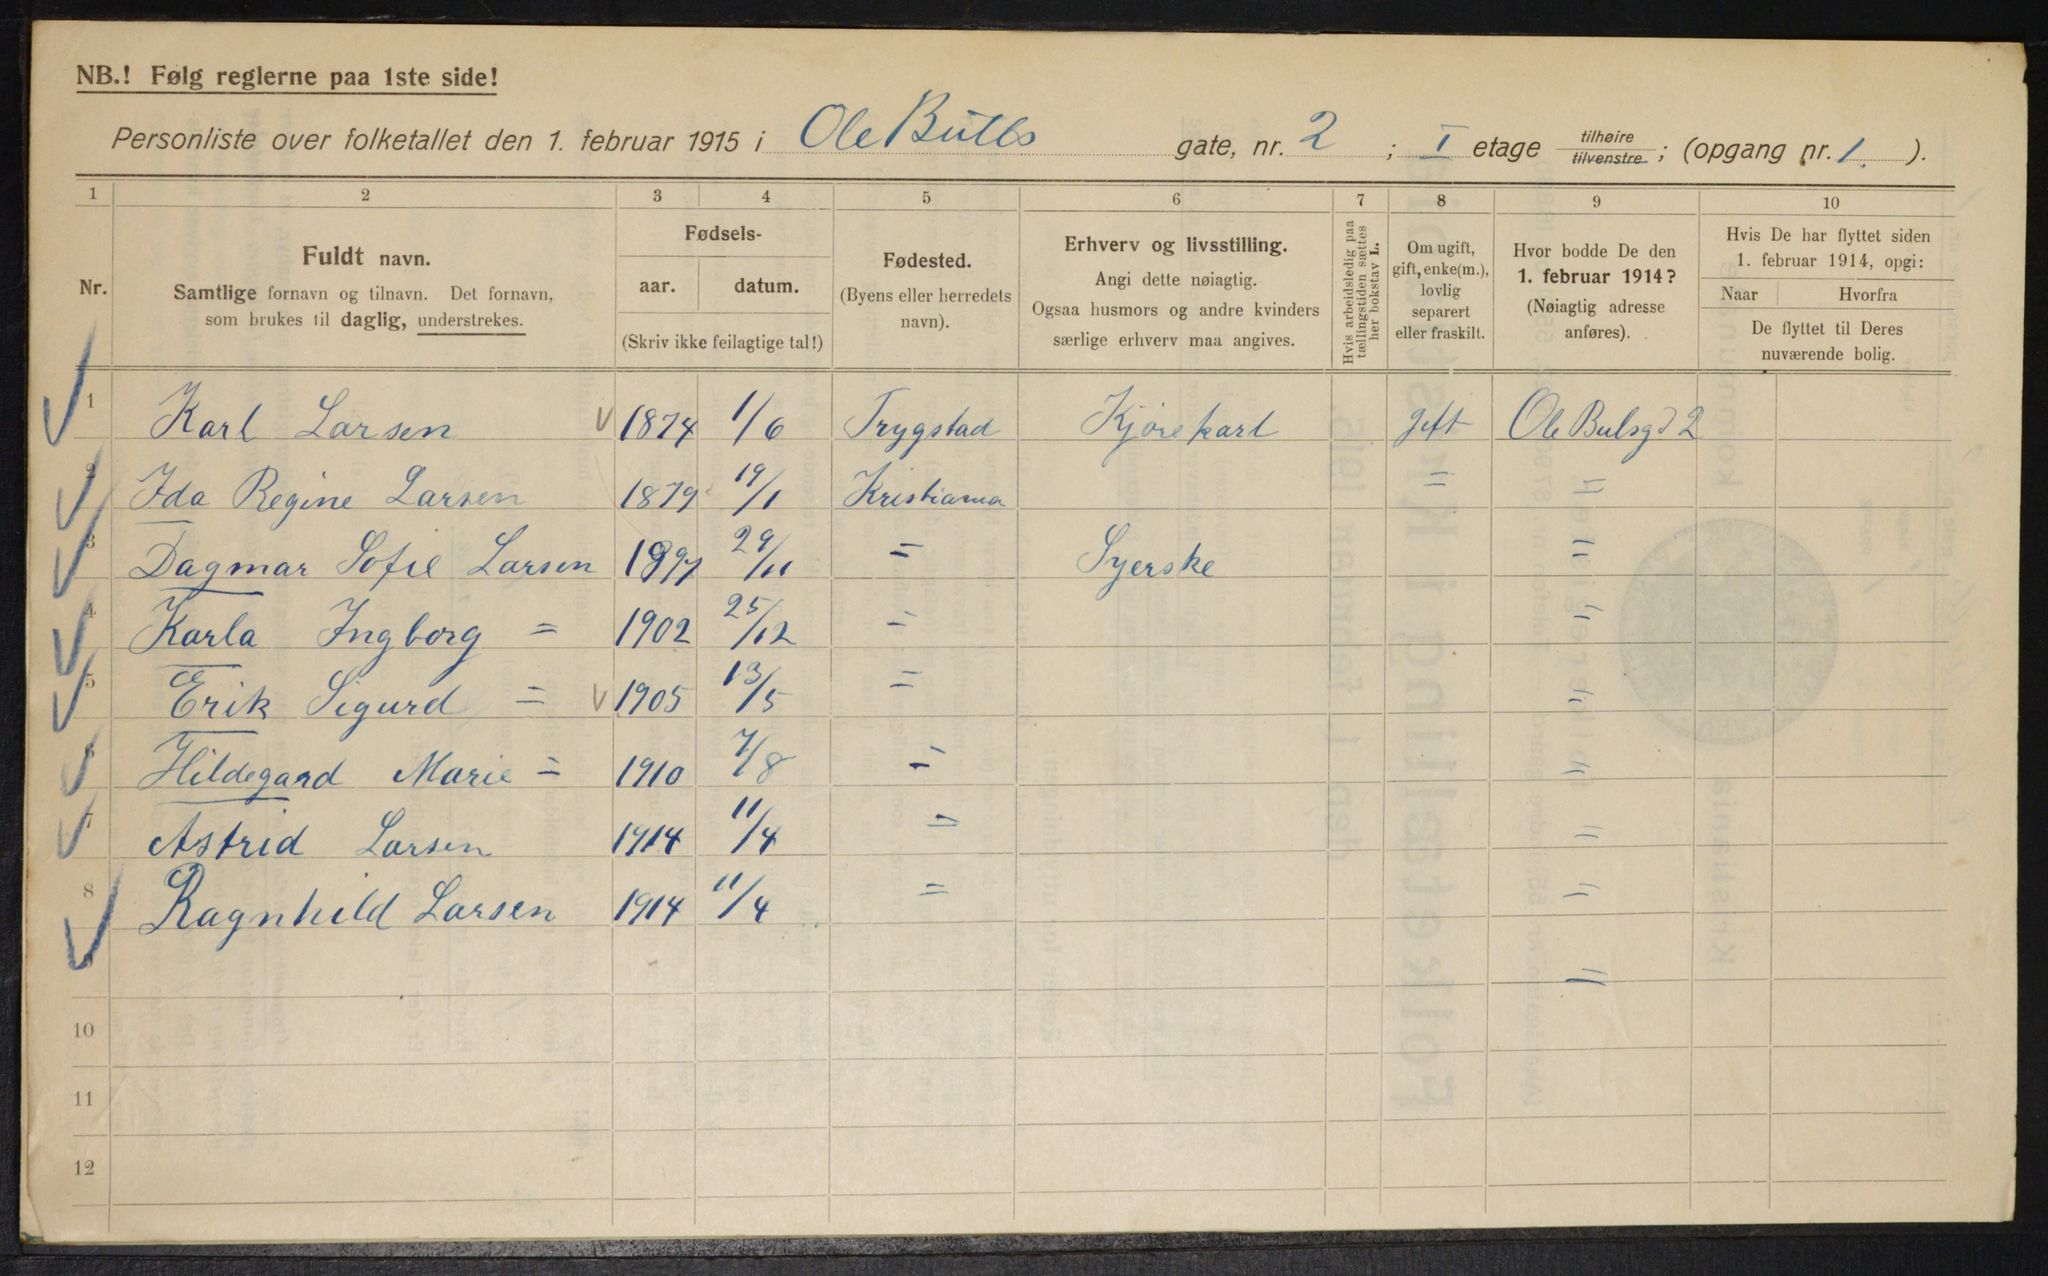 NB.! Følg reglerne paa 1ste side!
Personliste over folketallet den 1. februar 1915 i Ole Bulls gate, nr. 2 ; I etage tilhøire tilvenstre ; (opgang nr. 1. ).
1 2 3 4 5 6 7 8 9 10
Nr.
Fuldt navn.
Samtlige fornavn og tilnavn. Det fornavn,
som brukes til daglig, understrekes.
Fødsels-
aar. datum.
(Skriv ikke feilagtige tal!)
Fødested.
(Byens eller herredets
navn).
Erhverv og livsstilling.
Angi dette nøiagtig.
Ogsaa husmors og andre kvinders
særlige erhverv maa angives.
Hvis arbeidsledig paa
tællingstiden sættes
her bokstav L.
Om ugift,
gift, enke(m.),
lovlig
separert
eller fraskilt.
Hvor bodde De den
1. februar 1914?
(Nøiagtig adresse
anføres).
Hvis De har flyttet siden
1. februar 1914, opgi:
Naar Hvorfra
De flyttet til Deres
nuværende bolig.
1 Karl Larsen 1874 1/6 Trygstad Kjørekarl gift Ole Bulsgd 2
2 Ida Regine Larsen 1879 19/1 Kristiania " "
3 Dagmar Sofie Larsen 1897 29/11 " Syerske "
4 Karla Ingborg = 1902 25/12 " "
5 Erik Sigurd = 1905 13/5 " "
6 Hildegard Marie = 1910 7/8 " "
7 Astrid Larsen 1914 11/4 " "
8 Ragnhild Larsen 1914 11/4 " "
"
10
11
12